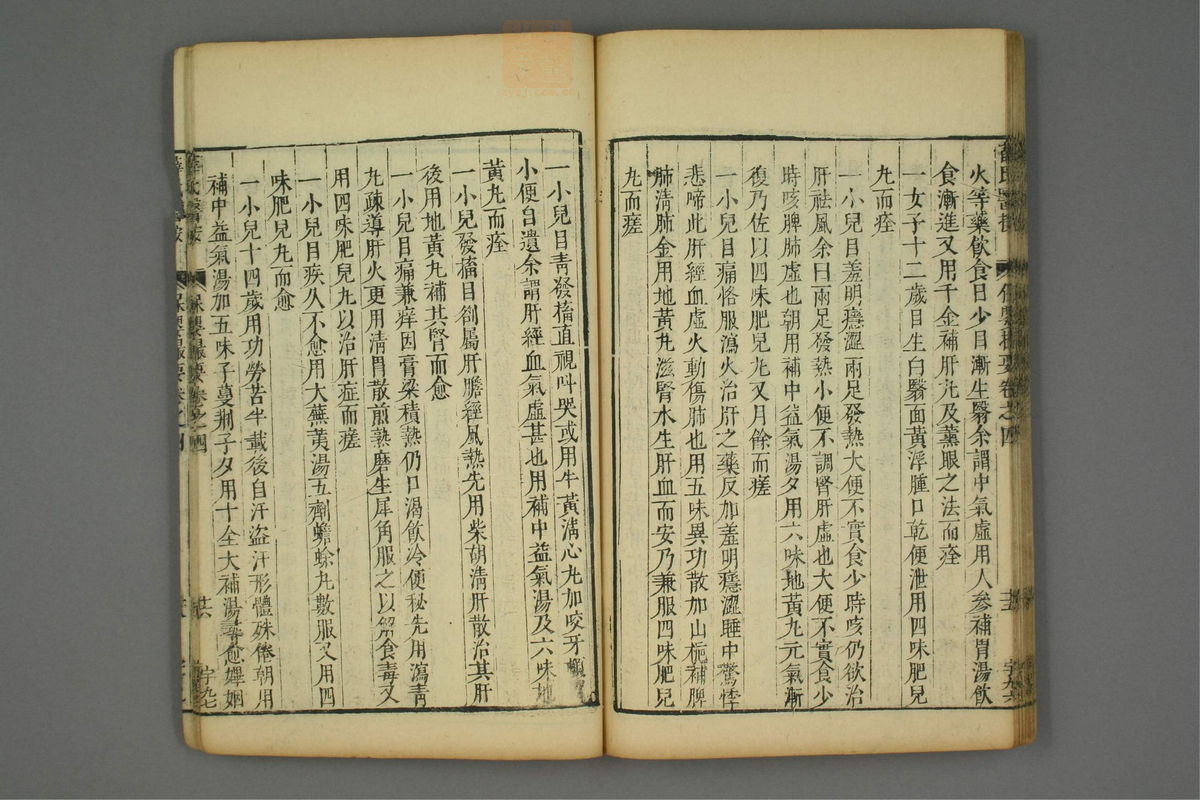 薛氏醫按
保嬰撮要卷之四
火等藥飲食日少目漸生翳余謂中氣虛用人參補胃湯飲
食漸進又用千金補肝丸及薰眼之法而痊
一女子十二歲目生白翳面黃浮腫口乾便泄用四味肥兒
丸而痊
一小兒目羞明癮澀兩足發熱大便不實食少時咳仍欲治
肝祛風余曰兩足發熱小便不調腎肝虛也大便不實食少
時咳脾肺虛也朝用補中益氣湯夕用六味地黃丸元氣漸
復乃佐以四味肥兒丸又月餘而瘥
一小兒目痛恪服瀉火治肝之藥反加羞明癮澀睡中驚悸
悲啼此肝經血虛火動傷肺也用五味異功散加山梔補脾
肺清肺金用地黃丸滋腎水生肝血而安乃兼服四味肥兒
丸而瘥
一小兒目青發搐直視叫哭或用牛黃清心丸加咬牙頓
小便自遺余謂肝經血氣虛甚也用補中益氣湯及六味地
黃丸而痊
一小兒發搐目劄屬肝膽經風熱先用柴胡清肝散治其肝
後用地黃丸補其腎而愈
一小兒目痛兼痒因膏粱積熱仍口渴飲冷便秘先用瀉青
丸疎導肝火更用清胃散煎熟磨生犀角服之以解食毒又
用四味肥兒丸以治肝症而瘥
一小兒目疾久不愈用大蕪荑湯五劑蟾蜍丸數服又用四
味肥兒丸而愈
一小兒十四歲用功勞苦半載後自汗盜汗形體殊倦朝用
補中益氣湯加五味子蔓荊子夕用十全大補湯尋愈嬰姻
薛氏醫按
保嬰撮要卷之四
廿六
宇九七